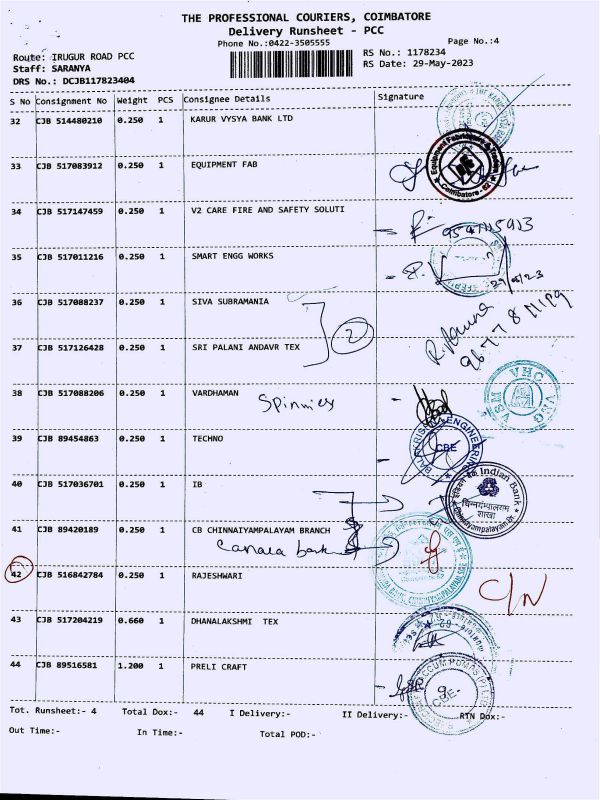 THE PROFESSIONAL COURIERS, COIMBATORE
Delivery Runsheet - PCC
Phone No.:0422-3505555
Page No.:4
Route: IRUGUR ROAD PCC
RS No.: 1178234
Staff: SARANYA
RS Date: 29-May-2023
DRS No.: DCJB117823404
S No Consignment No Weight PCS Consignee Details Signature
32 CJB 514480210 0.250 1 KARUR VYSYA BANK LTD
33 CJB 517083912 0.250 1 EQUIPMENT FAB
Coimbatore - 62
34 CJB 517147459 0.250 1 V2 CARE FIRE AND SAFETY SOLUTI
35 CJB 517011216 0.250 1 SMART ENGG WORKS
36 CJB 517088237 0.250 1 SIVA SUBRAMANIA
2
37 CJB 517126428 0.250 1 SRI PALANI ANDAVR TEX
38 CJB 517088206 0.250 1 VARDHAMAN
VHC VMG VSM
39 CJB 89454863 0.250 1 TECHNO
CBE
40 CJB 517036701 0.250 1 IB
Indian Bank
शाखा
41 CJB 89420189 0.250 1 CB CHINNAIYAMPALAYAM BRANCH
Canara bank
42 CJB 516842784 0.250 1 RAJESHWARI
C/N
43 CJB 517204219 0.660 1 DHANALAKSHMI TEX
44 CJB 89516581 1.200 1 PRELI CRAFT
Tot. Runsheet:- 4 Total Dox:- 44 I Delivery:- II Delivery:- RTN Dox:-
Out Time:- In Time:- Total POD:-